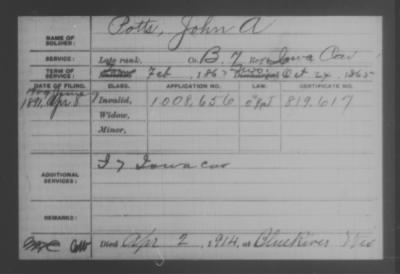 NAME OF SOLDIER: Potts, John A
SERVICE: Late rank, Co. B. 7 Reg't Iowa Cav
TERM OF SERVICE: Feb , 186 Oct 24, 1865
DATE OF FILING. CLASS. APPLICATION NO. LAW. CERTIFICATE NO.
1891, Apr. 8 Invalid, 1.008.656 819.617
Widow,
Minor,
ADDITIONAL SERVICES: I 7 Iowa Cav
REMARKS:
Died Apr 2, 1914, at Blue River Wis